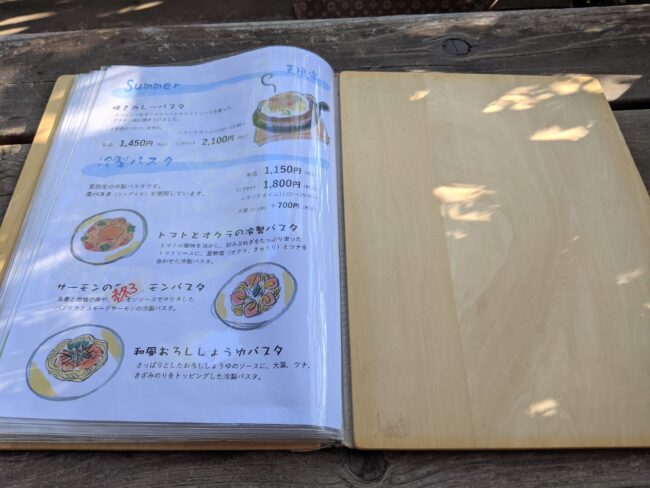 Summer
夏限定
焼きカレーパスタ
単品 1,450円(税込) ランチセット 2,100円(税込)
冷製パスタ
夏限定の冷製パスタです。
生パスタ(リングイネ)を使用しています。
単品 1,150円(税込)
ランチセット 1,800円(税込)
+700円(税込)
トマトとオクラの冷製パスタ
トマトの酸味を活かし、刻み玉ねぎをたっぷり使った
トマトソースに、夏野菜(オクラ、きゅうり)とツナを
合わせた冷製パスタ。
サーモンの モンパスタ
終了
モンソースでマリネした
パプリカとスモークサーモンの冷製パスタ。
和風おろししょうゆパスタ
さっぱりとしたおろししょうゆのソースに、大葉、ツナ、
きざみのりをトッピングした冷製パスタ。